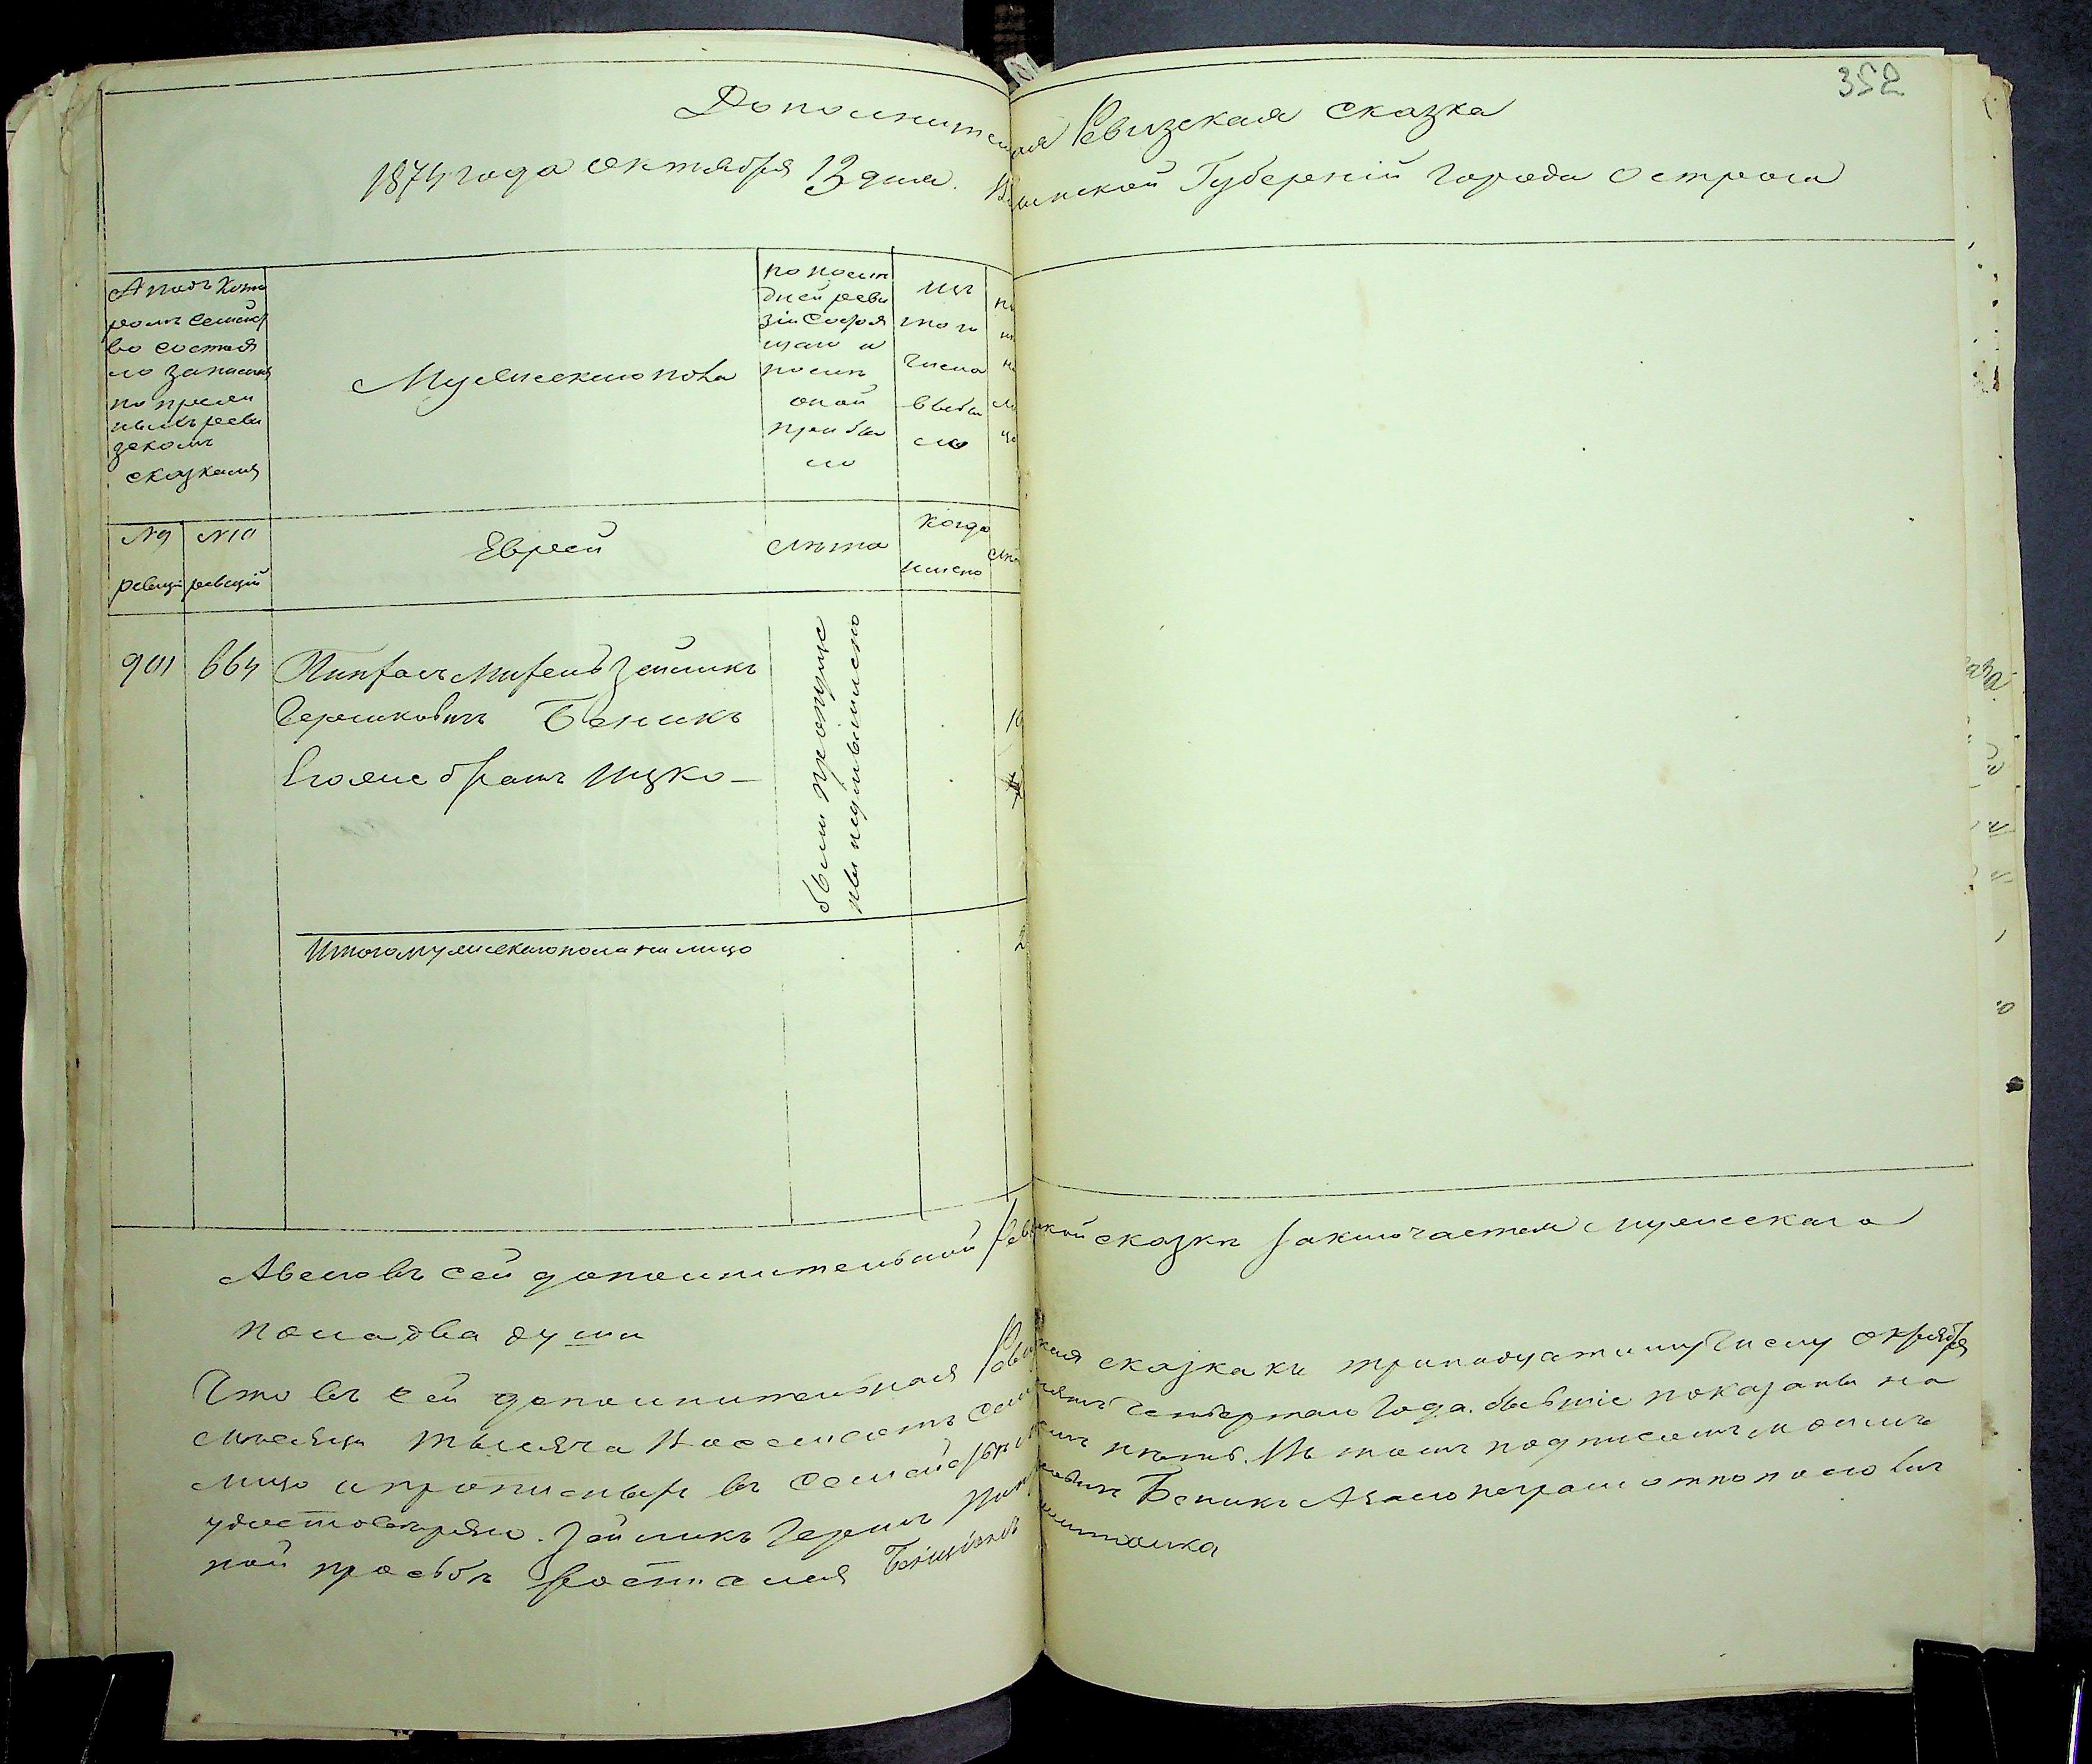 352
Дополнитель ая Ревизская сказка
1874 года Октября 13 дня. Во ынской Губерній города Острога
А подъ кото
ромъ семейст
во состоя
ло записан
по прежн
нымъ реви
зскомъ
сказкамъ
Мужескаго пола
по послѣ
дней реви
зіи состоя
щаго и
послѣ
оной
прибы
ло
изъ
того
числа
выбы
ло
№9 №10
ревизіи ревизій
Еврей
Лѣта
когда
имено
901 664
Зейликъ
Гершковичъ Беникъ
Его же братъ Ицко
были пропуще
ны неумышлено
10
2
Итого мужескаго пола на лицо
А всего въ сей дополнительной Рев ской сказкѣ заключается мужескаго
пола два души
Что въ сей дополнительная Реви кая сказка къ тринадцатому числу октября
мѣсяца тысяча восемсотъ сем четвертаго года. бывшіе показаны на
лицо и въ семъ нѣтъ. Въ томъ подписомъ моимъ
удостовѣряю. Зейликъ Герш Беникъ А за его неграмотно по его лич
ной прозьбѣ росписался